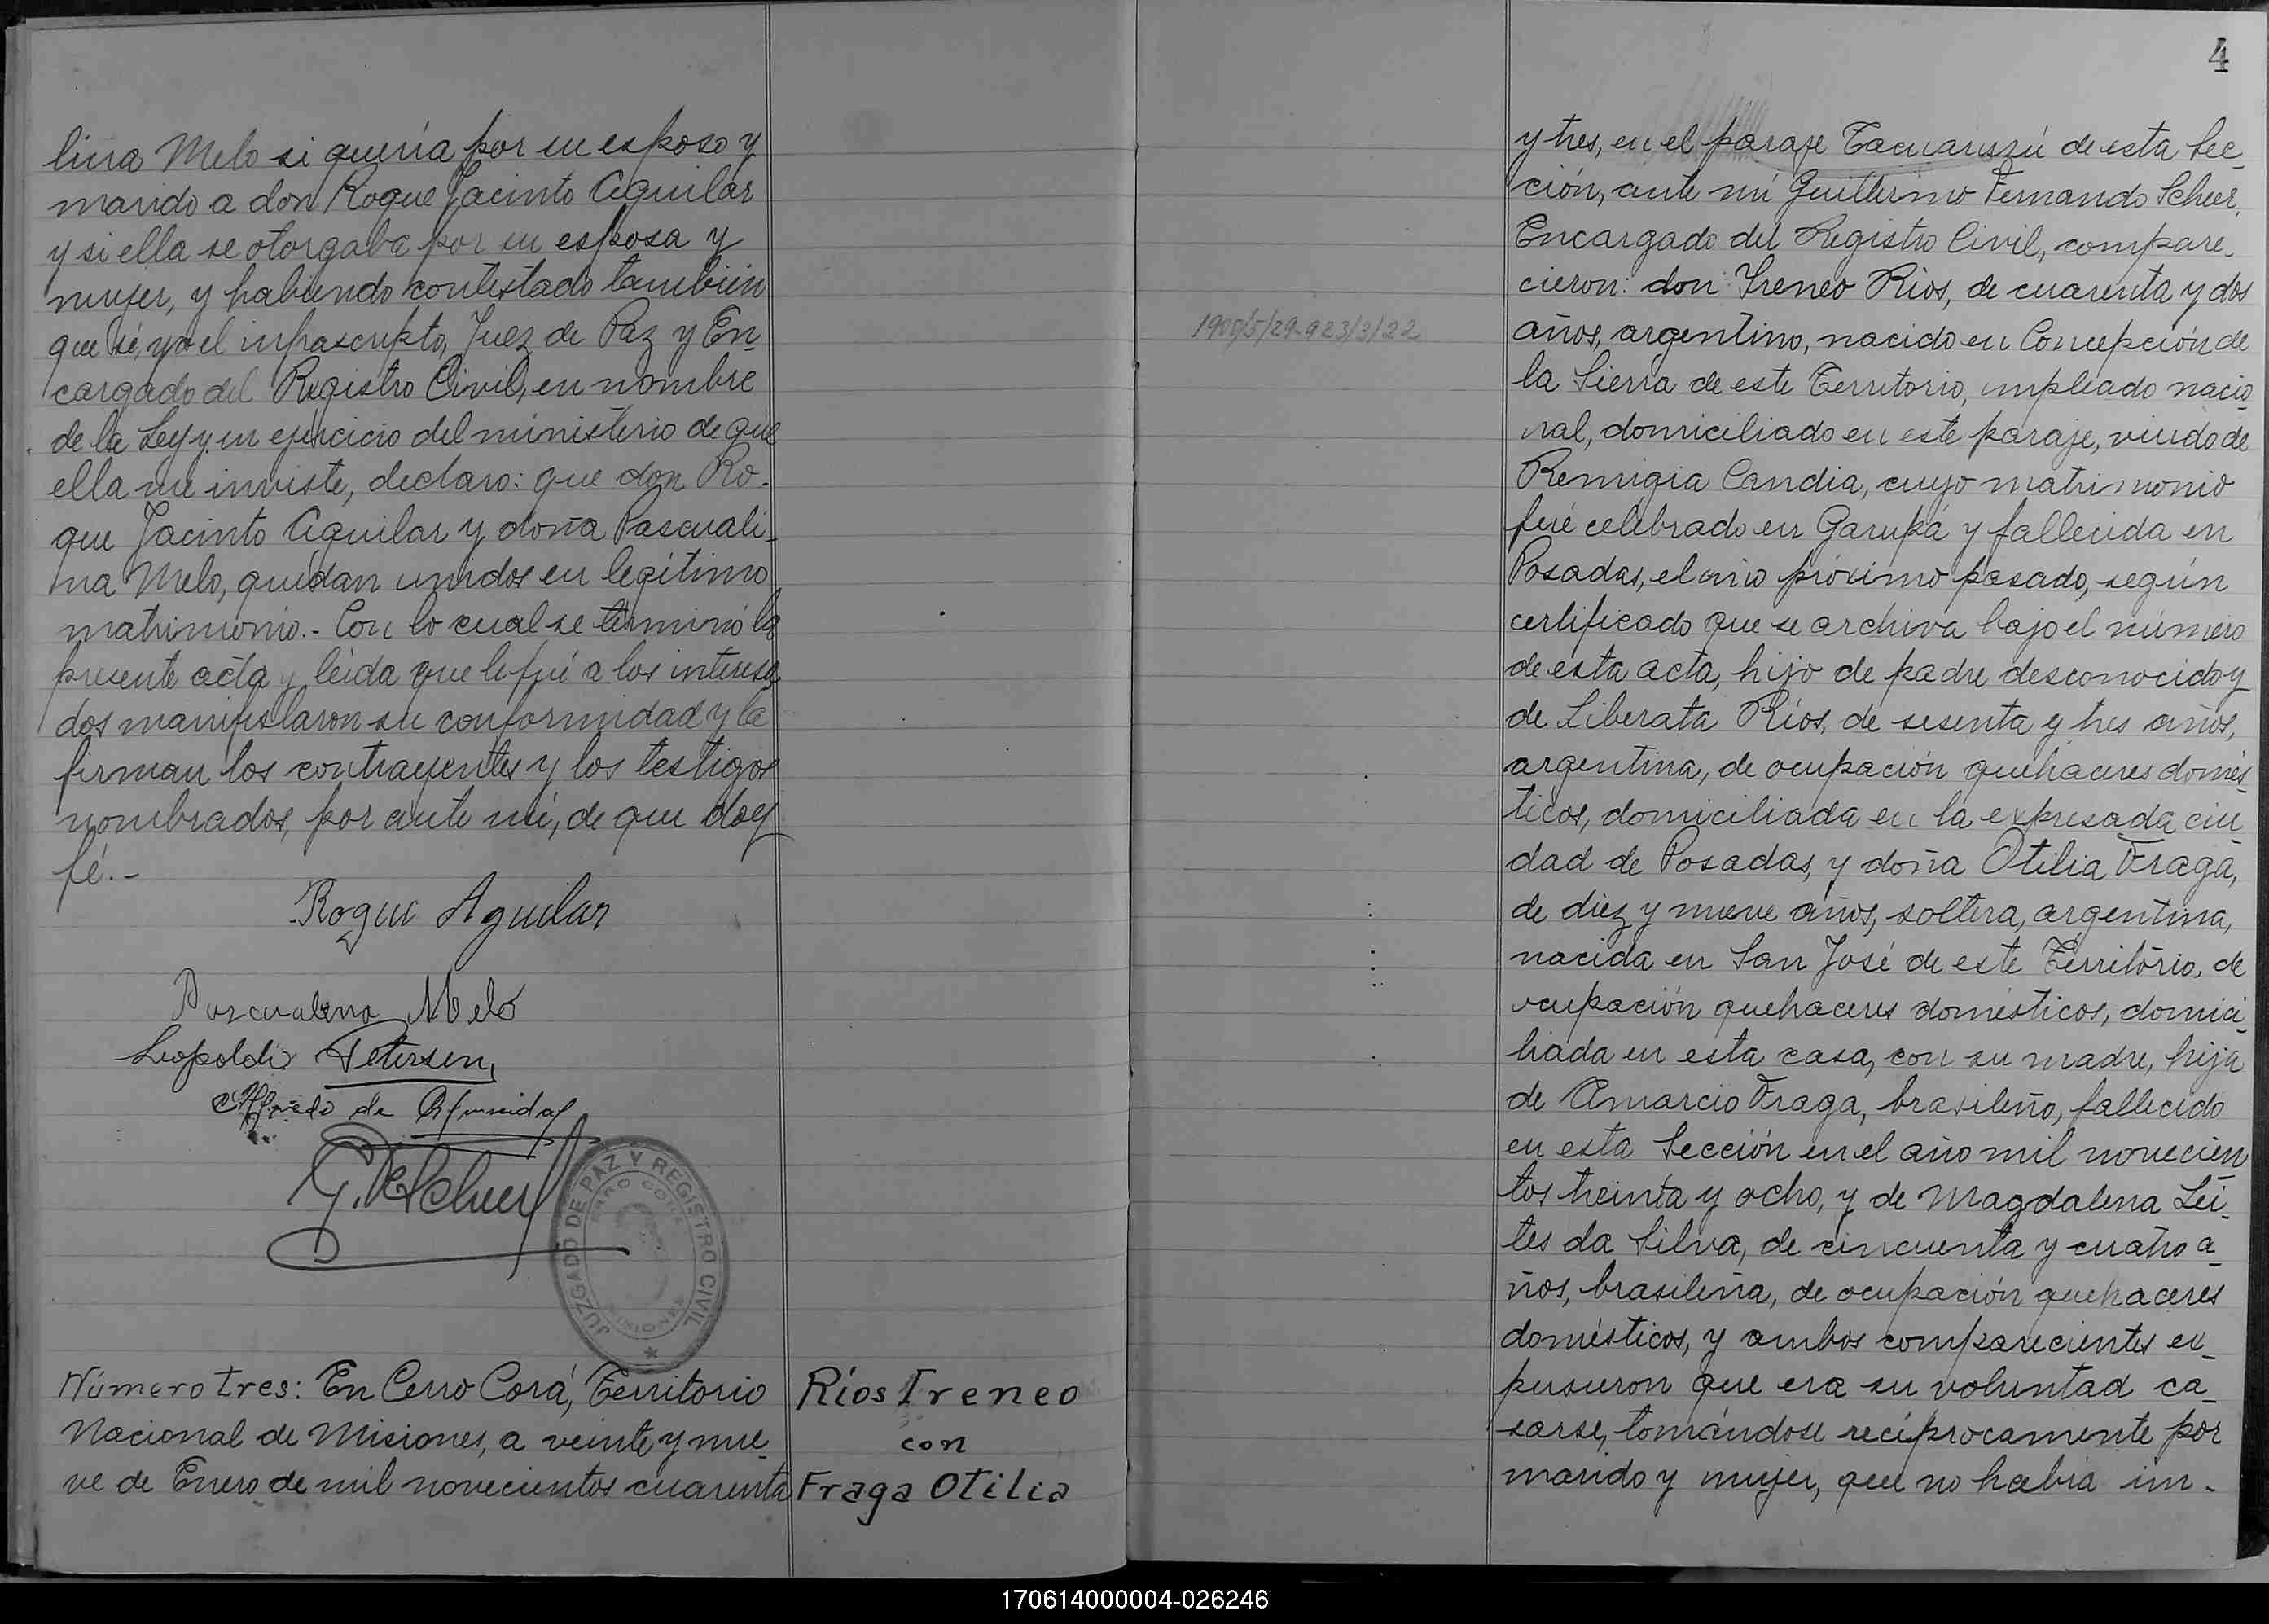 lina Melo si quería por su esposo y
marido a don Roque Jacinto Aguilar
y si ella se otorgaba por su esposa y
mujer, y habiendo contestado también
que sí, yo el infrascripto, Juez de Paz y En-
cargado del Registro Civil, en nombre
de la Ley y en ejercicio del ministerio de que
ella me inviste, declaro: que don Ro-
que Jacinto Aguilar y doña Pascuali-
na Melo, quedan unidos en legítimo
matrimonio.- Con lo cual se terminó la
presente acta y leida que le fué a los interesa
dos manifestaron su conformidad y la
firman los contrayentes y los testigos
nombrados, por ante mí, de que doy
fé.-
Roque Aguilar
Pascualina Melo
Leopoldo Petersen
Alfredo de
G. F. Scheer
JUZGADO DE PAZ Y REGISTRO CIVIL
CERRO CORÁ
MISIONES
Número tres: En Cerro Corá, Territorio
Nacional de Misiones, a veinte y nue-
ve de Enero de mil novecientos cuarenta
Ríos Ireneo
con
Fraga Otilia
4
1900/5/29-923/3/22
y tres, en el paraje Tacuaruzú de esta Sec-
ción, ante mí Guillermo Fernando Scheer,
Encargado del Registro Civil, compare-
cieron: don Ireneo Ríos, de cuarenta y dos
años, argentino, nacido en Concepción de
la Sierra de este Territorio, empleado nacio-
nal, domiciliado en este paraje, viudo de
Remigia Candia, cuyo matrimonio
fué celebrado en Garupá y fallecida en
Posadas, el año próximo pasado, según
certificado que se archiva bajo el número
de esta acta, hijo de padre desconocido y
de Liberata Ríos, de sesenta y tres años,
argentina, de ocupación quehaceres domés-
ticos, domiciliada en la expresada ciu
dad de Posadas, y doña Otilia Fraga,
de diez y nueve años, soltera, argentina,
nacida en San José de este Territorio, de
ocupación quehaceres domésticos, domici-
liada en esta casa, con su madre, hija
de Amarcio Fraga, brasileño, fallecido
en esta Sección en el año mil novecien-
tos treinta y ocho, y de Magdalena Lei-
tes da Silva, de cincuenta y cuatro a-
ños, brasileña, de ocupación quehaceres
domésticos, y ambos comparecientes ex-
pusieron que era su voluntad ca-
sarse, tomándose recíprocamente por
marido y mujer, que no había im-
170614000004-026246